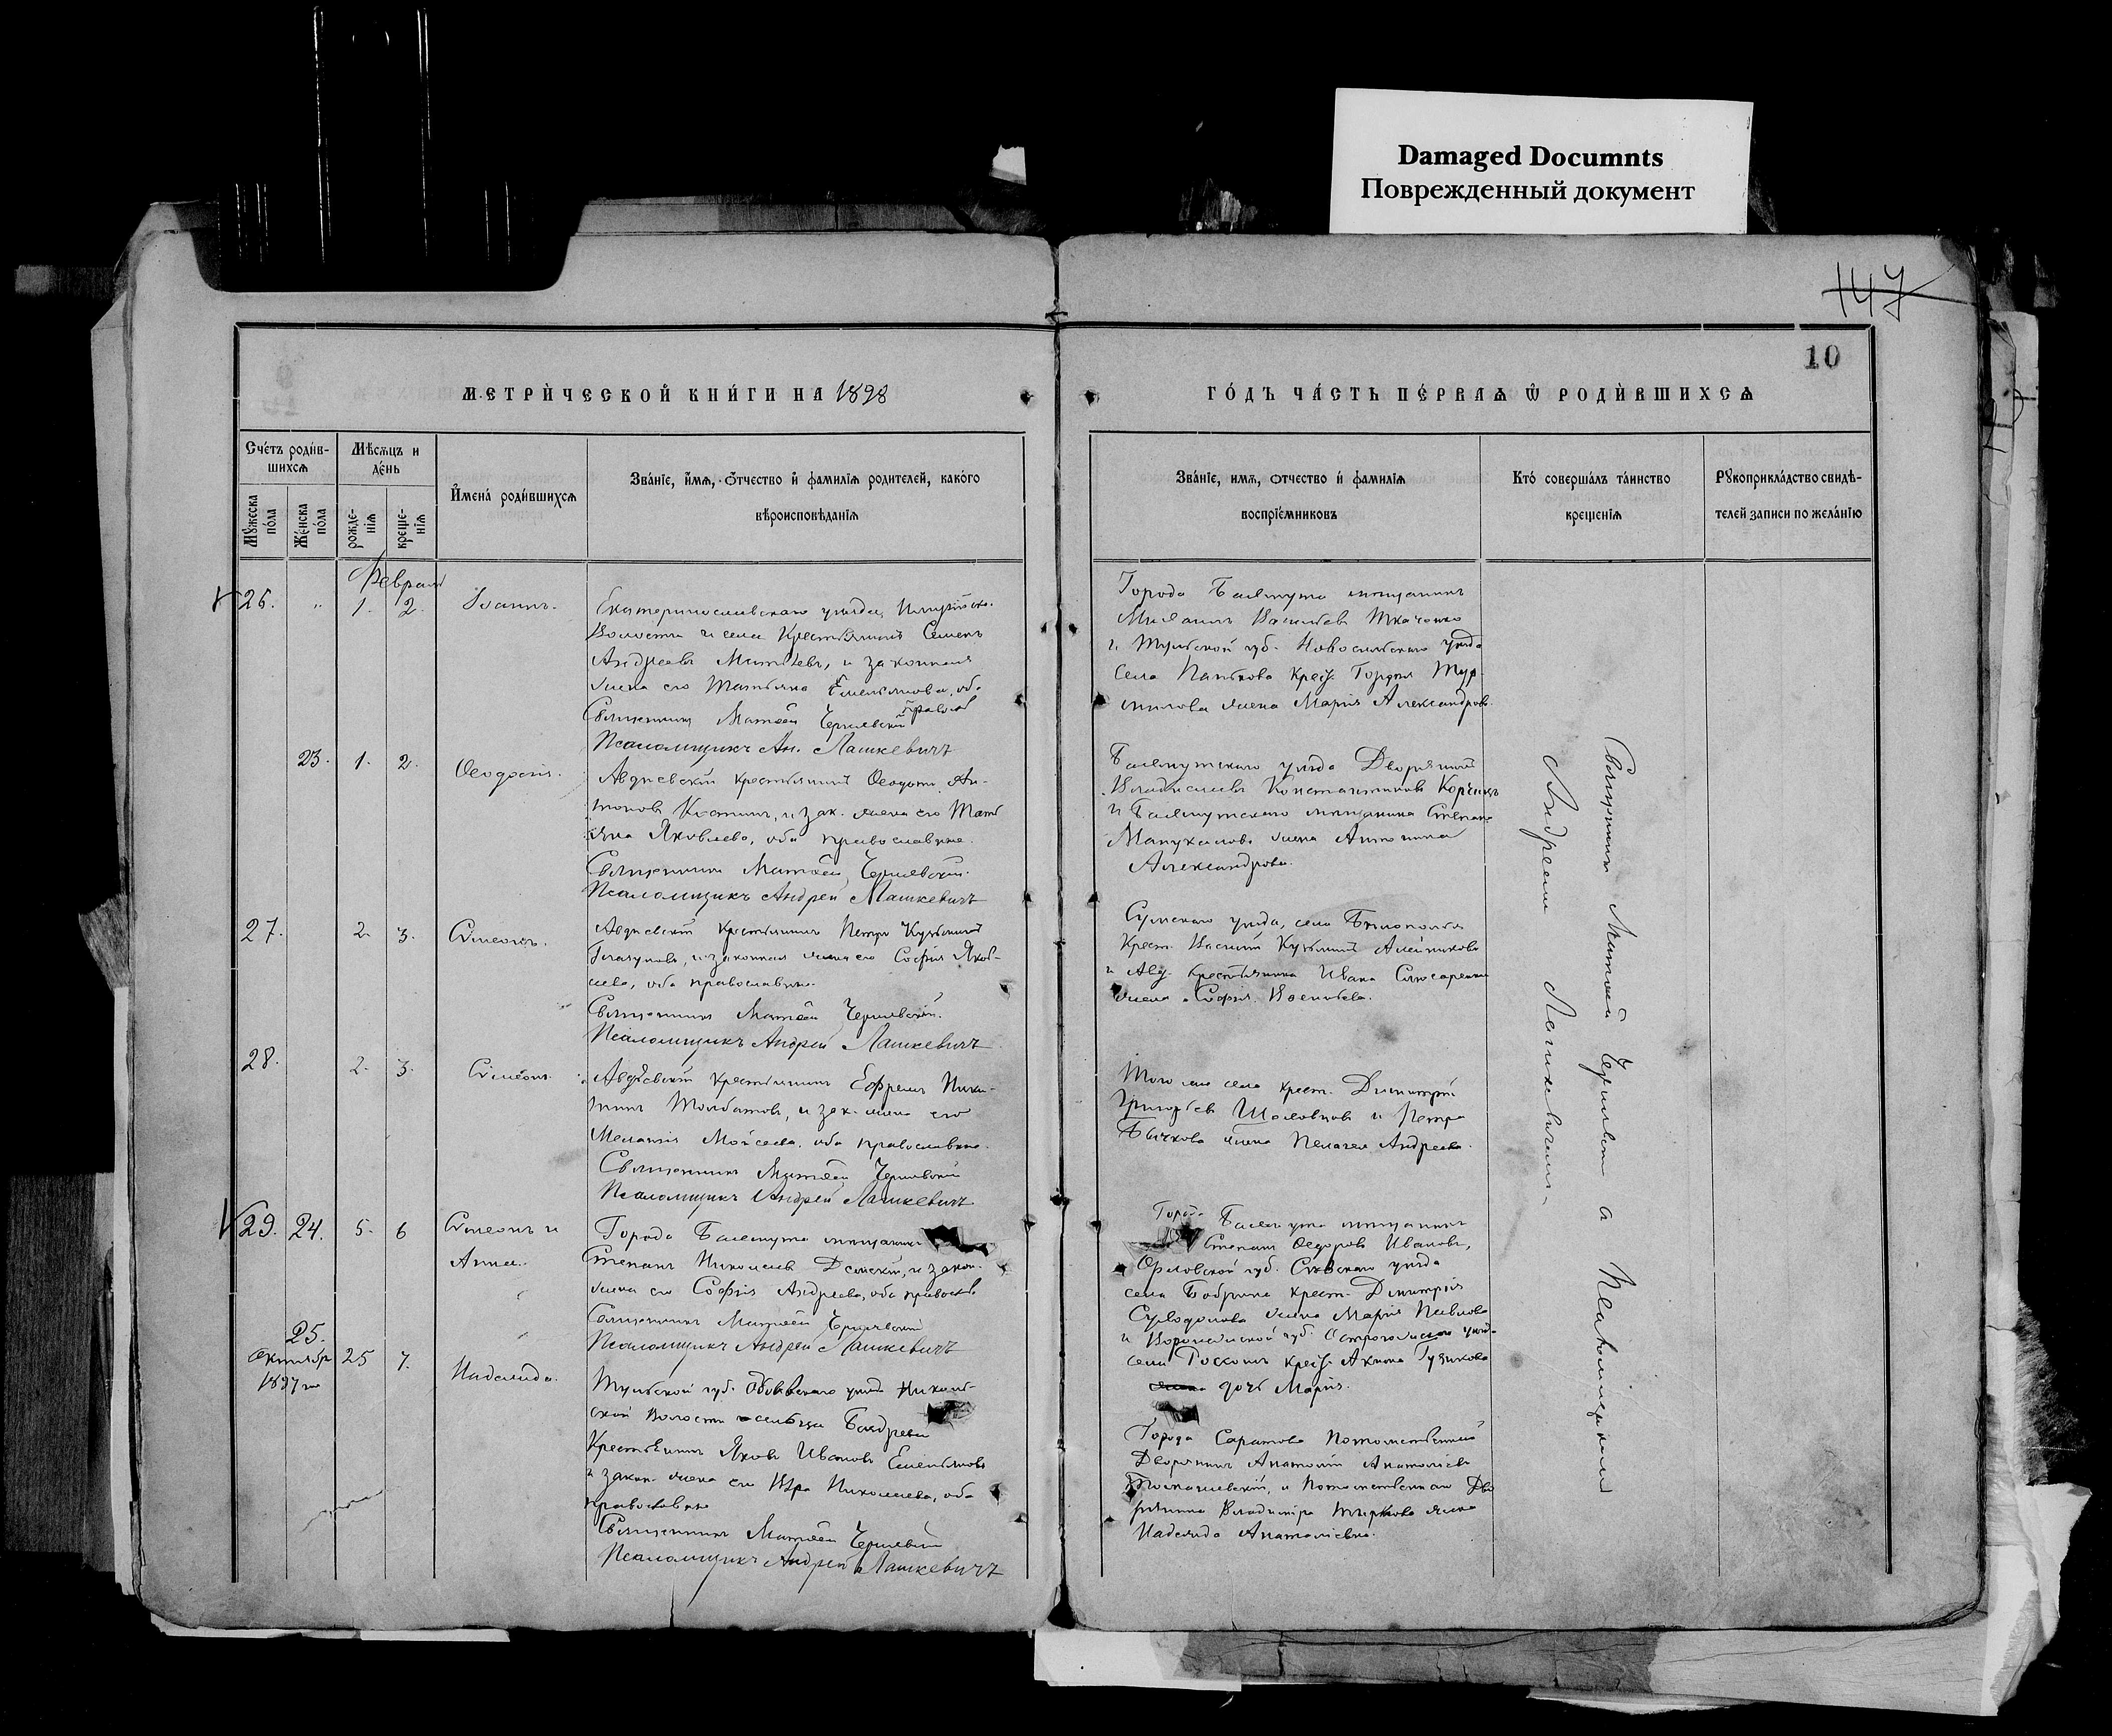 Damaged Documnts
Поврежденный документ
147
10
МЕТРИЧЕСКОЙ КНИГИ НА 1898
ГОДЪ ЧАСТЬ ПЕРВАѦ Ѿ РОДИВШИХСѦ
Счетъ родив-
шихсѧ
Мѣсѧцъ и
день
Мꙋжеска
пола
Женска
пола
рожде-
нїѧ
креще-
нїѧ
Имена родившихсѧ
Званїе, имѧ, ѻтчество и фамилїѧ родителей, какого
вѣроисповѣданїѧ
Званїе, имѧ, ѻтчество и фамилїѧ
воспрїемниковъ
Кто совершалъ таинство
крещенїѧ
Рꙋкоприкладство свидѣ-
телей записи по желанїю
Февраль
26. " 1. 2. Іоаннъ.
Екатеринославскаго уѣзда,
Волости и села Крестьянинъ Семенъ
Андреевъ и законная
жена его Татьяна Емельянова, оба
правосл
Священникъ Матѳей Чернявскій
Псаломщикъ Ан. Лашкевичъ
Города Бахмута мѣщанинъ
Михаилъ Васильевъ Ткаченко
и Тульской губ. Новосильскаго уѣзда
села Панькова крест. Гордѣя
жена Марія Александрова
23. 1. 2. Ѳеодосія.
Авдѣевскій крестьянинъ Ѳеодотъ Ан-
тоновъ Костинъ, и зак. жена его Тать
яна Яковлева, оба православные.
Священникъ Матѳей Чернявскій.
Псаломщикъ Андрей Лашкевичъ
Бахмутскаго уѣзда Дворянинъ
Владиславъ Константиновъ
и Бахмутскаго мѣщанина Степана
Манухилова жена Антонина
Александрова.
27. 2. 3. Сѵмеонъ.
Авдѣевскій крестьянинъ Петръ Кузьминъ
Глазуновъ, и законная жена его Софія Яков-
лева, оба православные.
Священникъ Матѳей Чернявскій.
Псаломщикъ Андрей Лашкевичъ
Сумскаго уѣзда, села Бѣлополья
Крест. Василій Кузьминъ Алейниковъ
и Авд. крестьянина Ивана Слюсаренко
жена Софія Васильева.
28. 2. 3. Сѵмеонъ.
Авдѣевскій крестьянинъ Ефремъ Ники-
тинъ Толбатовъ, и зак. жена его
Меланія Мойсеева, оба православные.
Священникъ Матѳей Чернявскій
Псаломщикъ Андрей Лашкевичъ
Того же села крест. Димитрій
Григорьевъ Шаповаловъ и Петра
Бычкова жена Пелагея Андреева.
29. 24. 5. 6 Сѵмеонъ и
Анна.
Города Бахмута мѣщанинъ
Степанъ Николаевъ Донской, и закон.
жена его Софія Андреева, оба правосл
Священникъ Матѳей Чернявскій
Псаломщикъ Андрей Лашкевичъ
Города Бахмута мѣщанинъ
Степанъ Ѳедоровъ Ивановъ,
Орловской губ. Сѣвскаго уѣзда
села Бобрика крест. Димитрія
Суходолова жена Марія Павлова
и Воронежской губ. Острогожскаго уѣзда
села крест. Акима Гузикова
дочь Марія.
25.
Октября
1897 г. 25 7. Надежда.
Тульской губ. уѣзда Николь-
ской Волости сельца
Крестьянинъ Яковъ Ивановъ Емельяновъ
и закон. жена его Вѣра Николаева, оба
православные
Священникъ Матѳей Чернявскій
Псаломщикъ Андрей Лашкевичъ
Города Саратова Потомственный
Дворянинъ Анатолій Анатоліевъ
и Потомственнаго Дво
рянина Владиміра жена
Надежда Анатоліевна.
Священникъ Матѳей Чернявскій съ Псаломщикомъ
Андреемъ Лашкевичемъ.